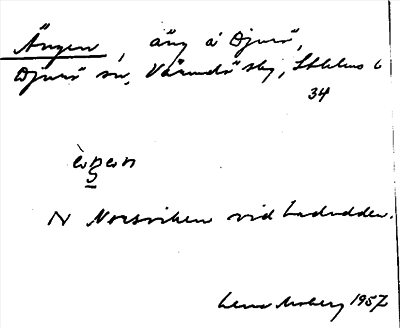 Ängen, äng å Djurö,
Djurö sn, Värmdö skg, Sthlms l
34
N Norsviken vid Ladudden.
Lena Moberg 1957